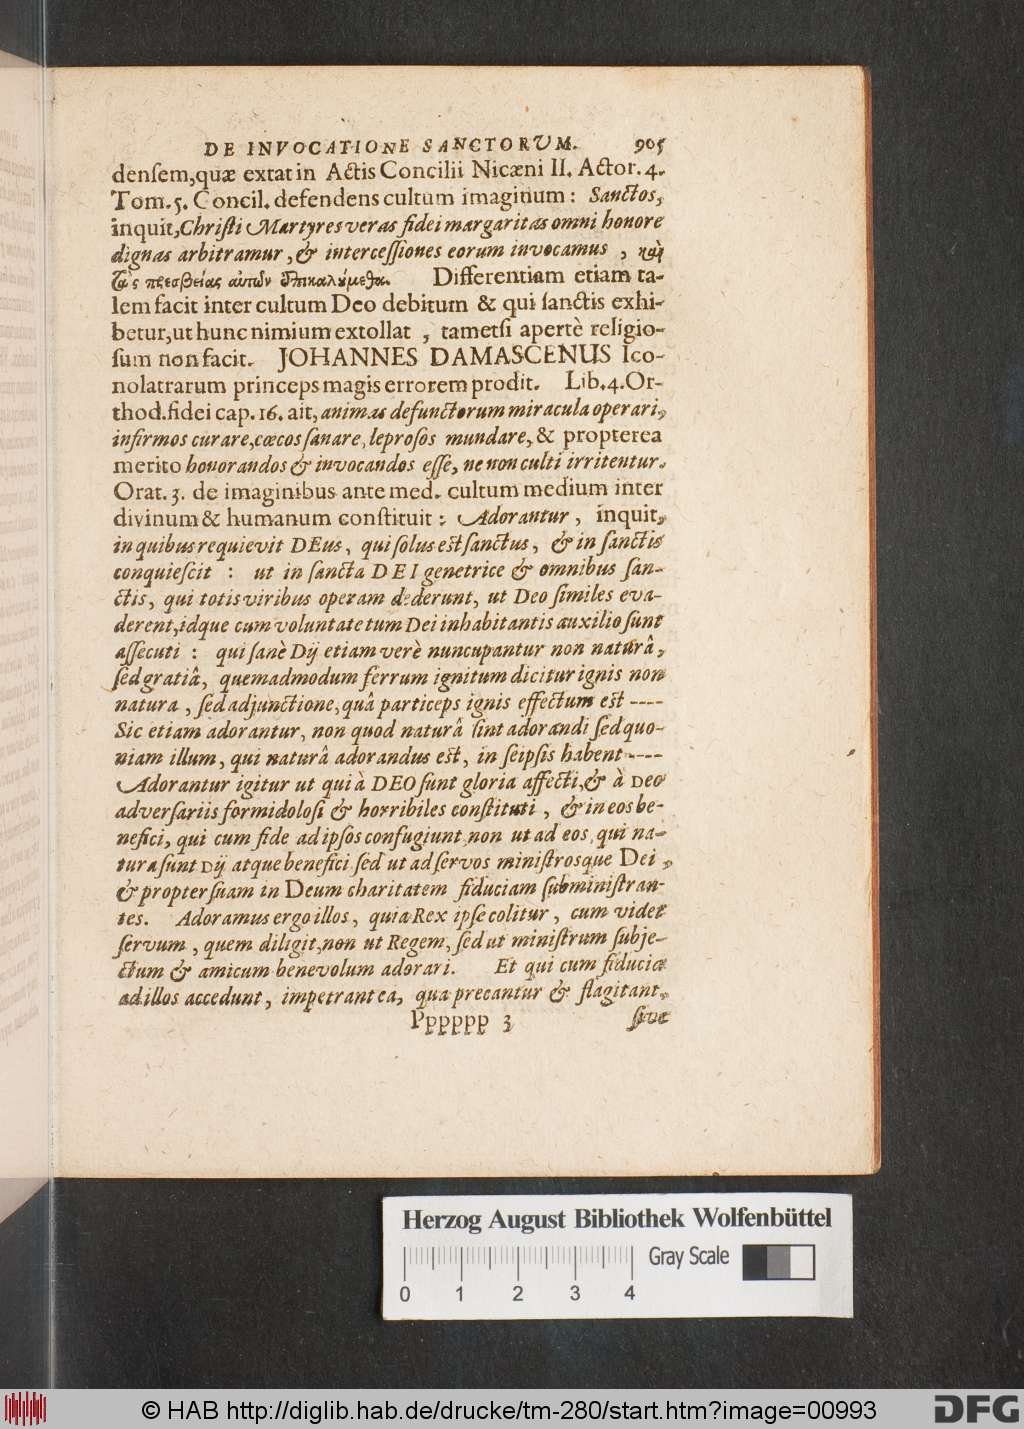 DE INVOCATIONE SANCTORUM. 905
denſem, quæ extat in Actis Concilii Nicæni II. Actor. 4.
Tom. 5. Concil. defendens cultum imaginum: Sanctos,
inquit, Chriſti Martyres veras fidei margaritas omni honore
dignas arbitramur, & interceſſiones eorum invocamus, καὶ
τὰς πρεσβείας αὐτῶν ἐπικαλούμεθα. Differentiam etiam ta-
lem facit inter cultum Deo debitum & qui ſanctis exhi-
betur, ut hunc nimium extollat, tametſi apertè religio-
ſum non facit. JOHANNES DAMASCENUS Ico-
nolatrarum princeps magis errorem prodit. Lib. 4. Or-
thod. fidei cap. 16. ait, animas defunctorum miracula operari,
infirmos curare, cœcos ſanare, leproſos mundare, & propterea
merito honorandos & invocandos eſſe, ne non culti irritentur.
Orat. 3. de imaginibus ante med. cultum medium inter
divinum & humanum conſtituit: Adorantur, inquit,
in quibus requievit DEus, qui ſolus eſt ſanctus, & in ſanctis
conquieſcit : ut in ſancta DEI genetrice & omnibus ſan-
ctis, qui totis viribus operam dederunt, ut Deo ſimiles eva-
derent, idque cum voluntate tum Dei inhabitantis auxilio ſunt
aſſecuti : qui ſanè Dij etiam verè nuncupantur non naturâ,
ſed gratiâ, quemadmodum ferrum ignitum dicitur ignis non
natura, ſed adjunctione, quâ particeps ignis effectum eſt ----
Sic etiam adorantur, non quod naturâ ſint adorandi ſed quo-
niam illum, qui naturâ adorandus eſt, in ſeipſis habent ----
Adorantur igitur ut qui à DEO ſunt gloria affecti, & à DEO
adverſariis formidoloſi & horribiles conſtituti, & in eos be-
nefici, qui cum fide ad ipſos confugiunt non ut ad eos, qui na-
tura ſunt Dij atque benefici ſed ut ad ſervos miniſtrosque Dei,
& propter ſuam in Deum charitatem fiduciam ſubminiſtran-
tes. Adoramus ergo illos, quia Rex ipſe colitur, cum videt
ſervum, quem diligit, non ut Regem, ſed ut miniſtrum ſubje-
ctum & amicum benevolum adorari. Et qui cum fiducia
ad illos accedunt, impetrant ea, qua precantur & flagitant,
Pppppp 3 ſive
Herzog August Bibliothek Wolfenbüttel
Gray Scale
0 1 2 3 4
© HAB http://diglib.hab.de/drucke/tm-280/start.htm?image=00993
DFG